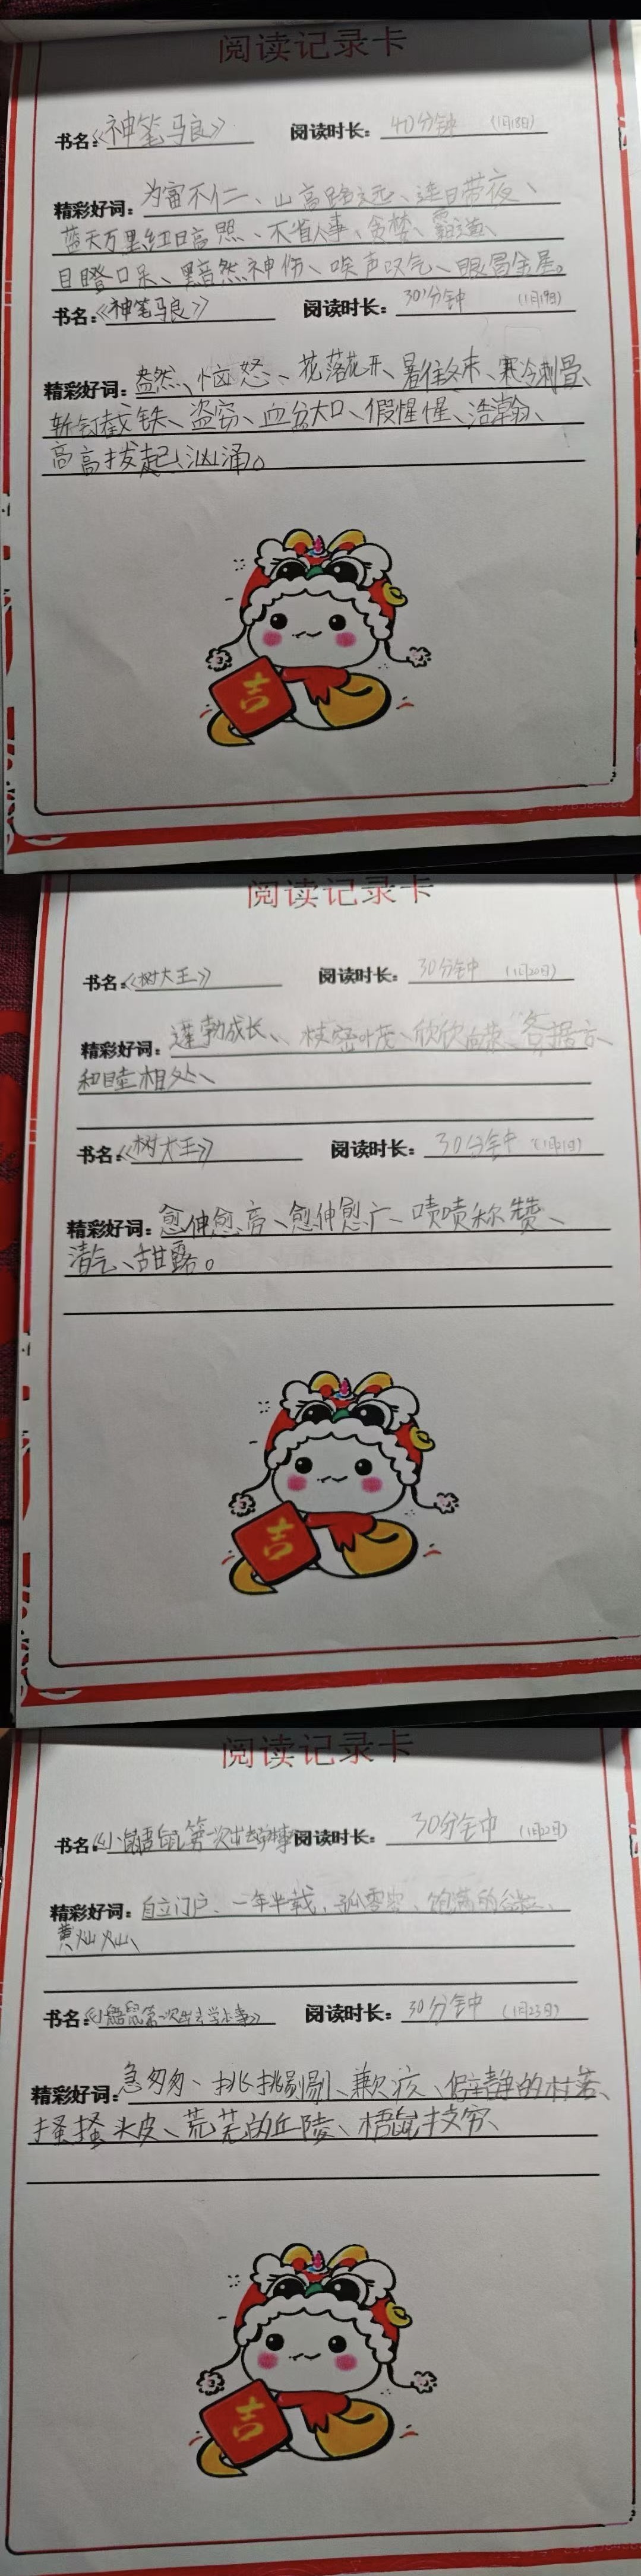 阅读记录卡
书名:《神笔马良》 阅读时长: 40分钟 (1月18日)
精彩好词: 为富不仁、山高路远、连日带夜、
蓝天万里红日高照、不省人事、贪婪、霸道、
目瞪口呆、黯然神伤、唉声叹气、眼冒金星。
书名:《神笔马良》 阅读时长: 30分钟 (1月19日)
精彩好词: 盎然、恼怒、花落花开、暑往冬来、寒冷刺骨、
斩钉截铁、盗窃、血盆大口、假惺惺、浩瀚、
高高拔起、汹涌。
吉
阅读记录卡
书名:《树大王》 阅读时长: 30分钟 (1月20日)
精彩好词: 蓬勃成长、枝密叶茂、欣欣向荣、
和睦相处、
书名:《树大王》 阅读时长: 30分钟 (1月21日)
精彩好词: 愈伸愈高、愈伸愈广、啧啧称赞、
清气、甜露。
吉
阅读记录卡
书名:《小鼯鼠第一次出去学本事 阅读时长: 30分钟 (1月22日)
精彩好词: 自立门户、一年半载、孤零零、饱满的谷粒、
黄灿灿、
书名:《小鼯鼠第一次出去学本事》 阅读时长: 30分钟 (1月23日)
精彩好词: 急匆匆、挑挑剔剔、歉疚、僻静的村落、
搔搔头皮、荒芜的丘陵、梧鼠技穷、
吉